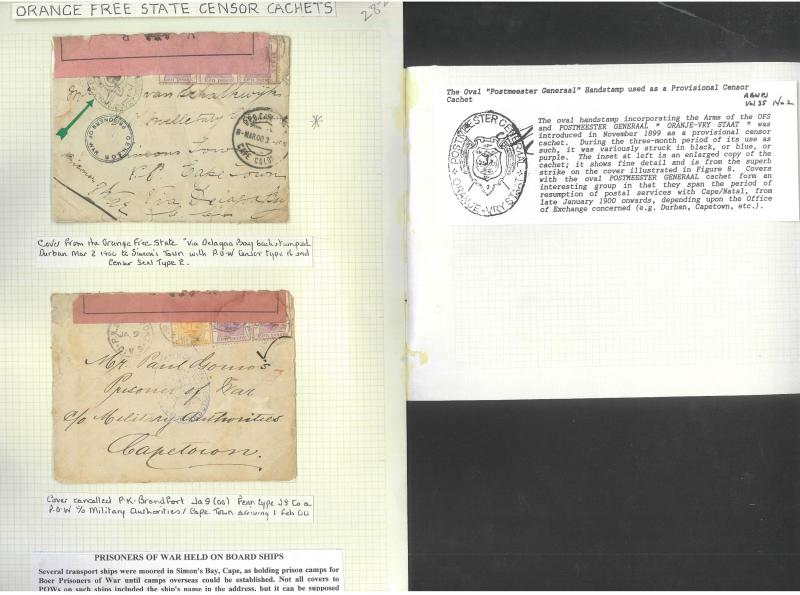 ORANGE FREE STATE CENSOR CACHETS
282
Simons Town
Cape Town
Via Delagoa Bay
PRISONERS OF WAR
CENSOR
MAR 00
CAPE COLONY
Cover from the Orange Free State "Via Delagoa Bay backstamped
Durban Mar 2 1900 to Simon's Town with P.O.W Censor type 1c and
Censor Seal Type 2.
JA 9
Mr. Paul
Prisoner of War
c/o Military Authorities
Capetown.
Cover cancelled P.K. Brandfort Ja 9 (00) Penn type J8 to a
P.O.W c/o Military Authorities / Cape Town arriving 1 Feb 00
PRISONERS OF WAR HELD ON BOARD SHIPS
Several transport ships were moored in Simon's Bay, Cape, as holding prison camps for
Boer Prisoners of War until camps overseas could be established. Not all covers to
POWs on such ships included the ship's name in the address, but it can be supposed
The Oval "Postmeester Generaal" Handstamp used as a Provisional Censor
Cachet
Vol 35 No 2
POSTMEESTER GENERAAL
ORANJE-VRY STAAT
The oval handstamp incorporating the Arms of the OFS
and POSTMEESTER GENERAAL * ORANJE-VRY STAAT * was
introduced in November 1899 as a provisional censor
cachet. During the three-month period of its use as
such, it was variously struck in black, or blue, or
purple. The inset at left is an enlarged copy of the
cachet; it shows fine detail and is from the superb
strike on the cover illustrated in Figure 8. Covers
with the oval POSTMEESTER GENERAAL cachet form an
interesting group in that they span the period of
resumption of postal services with Cape/Natal, from
late January 1900 onwards, depending upon the Office
of Exchange concerned (e.g. Durban, Capetown, etc.).